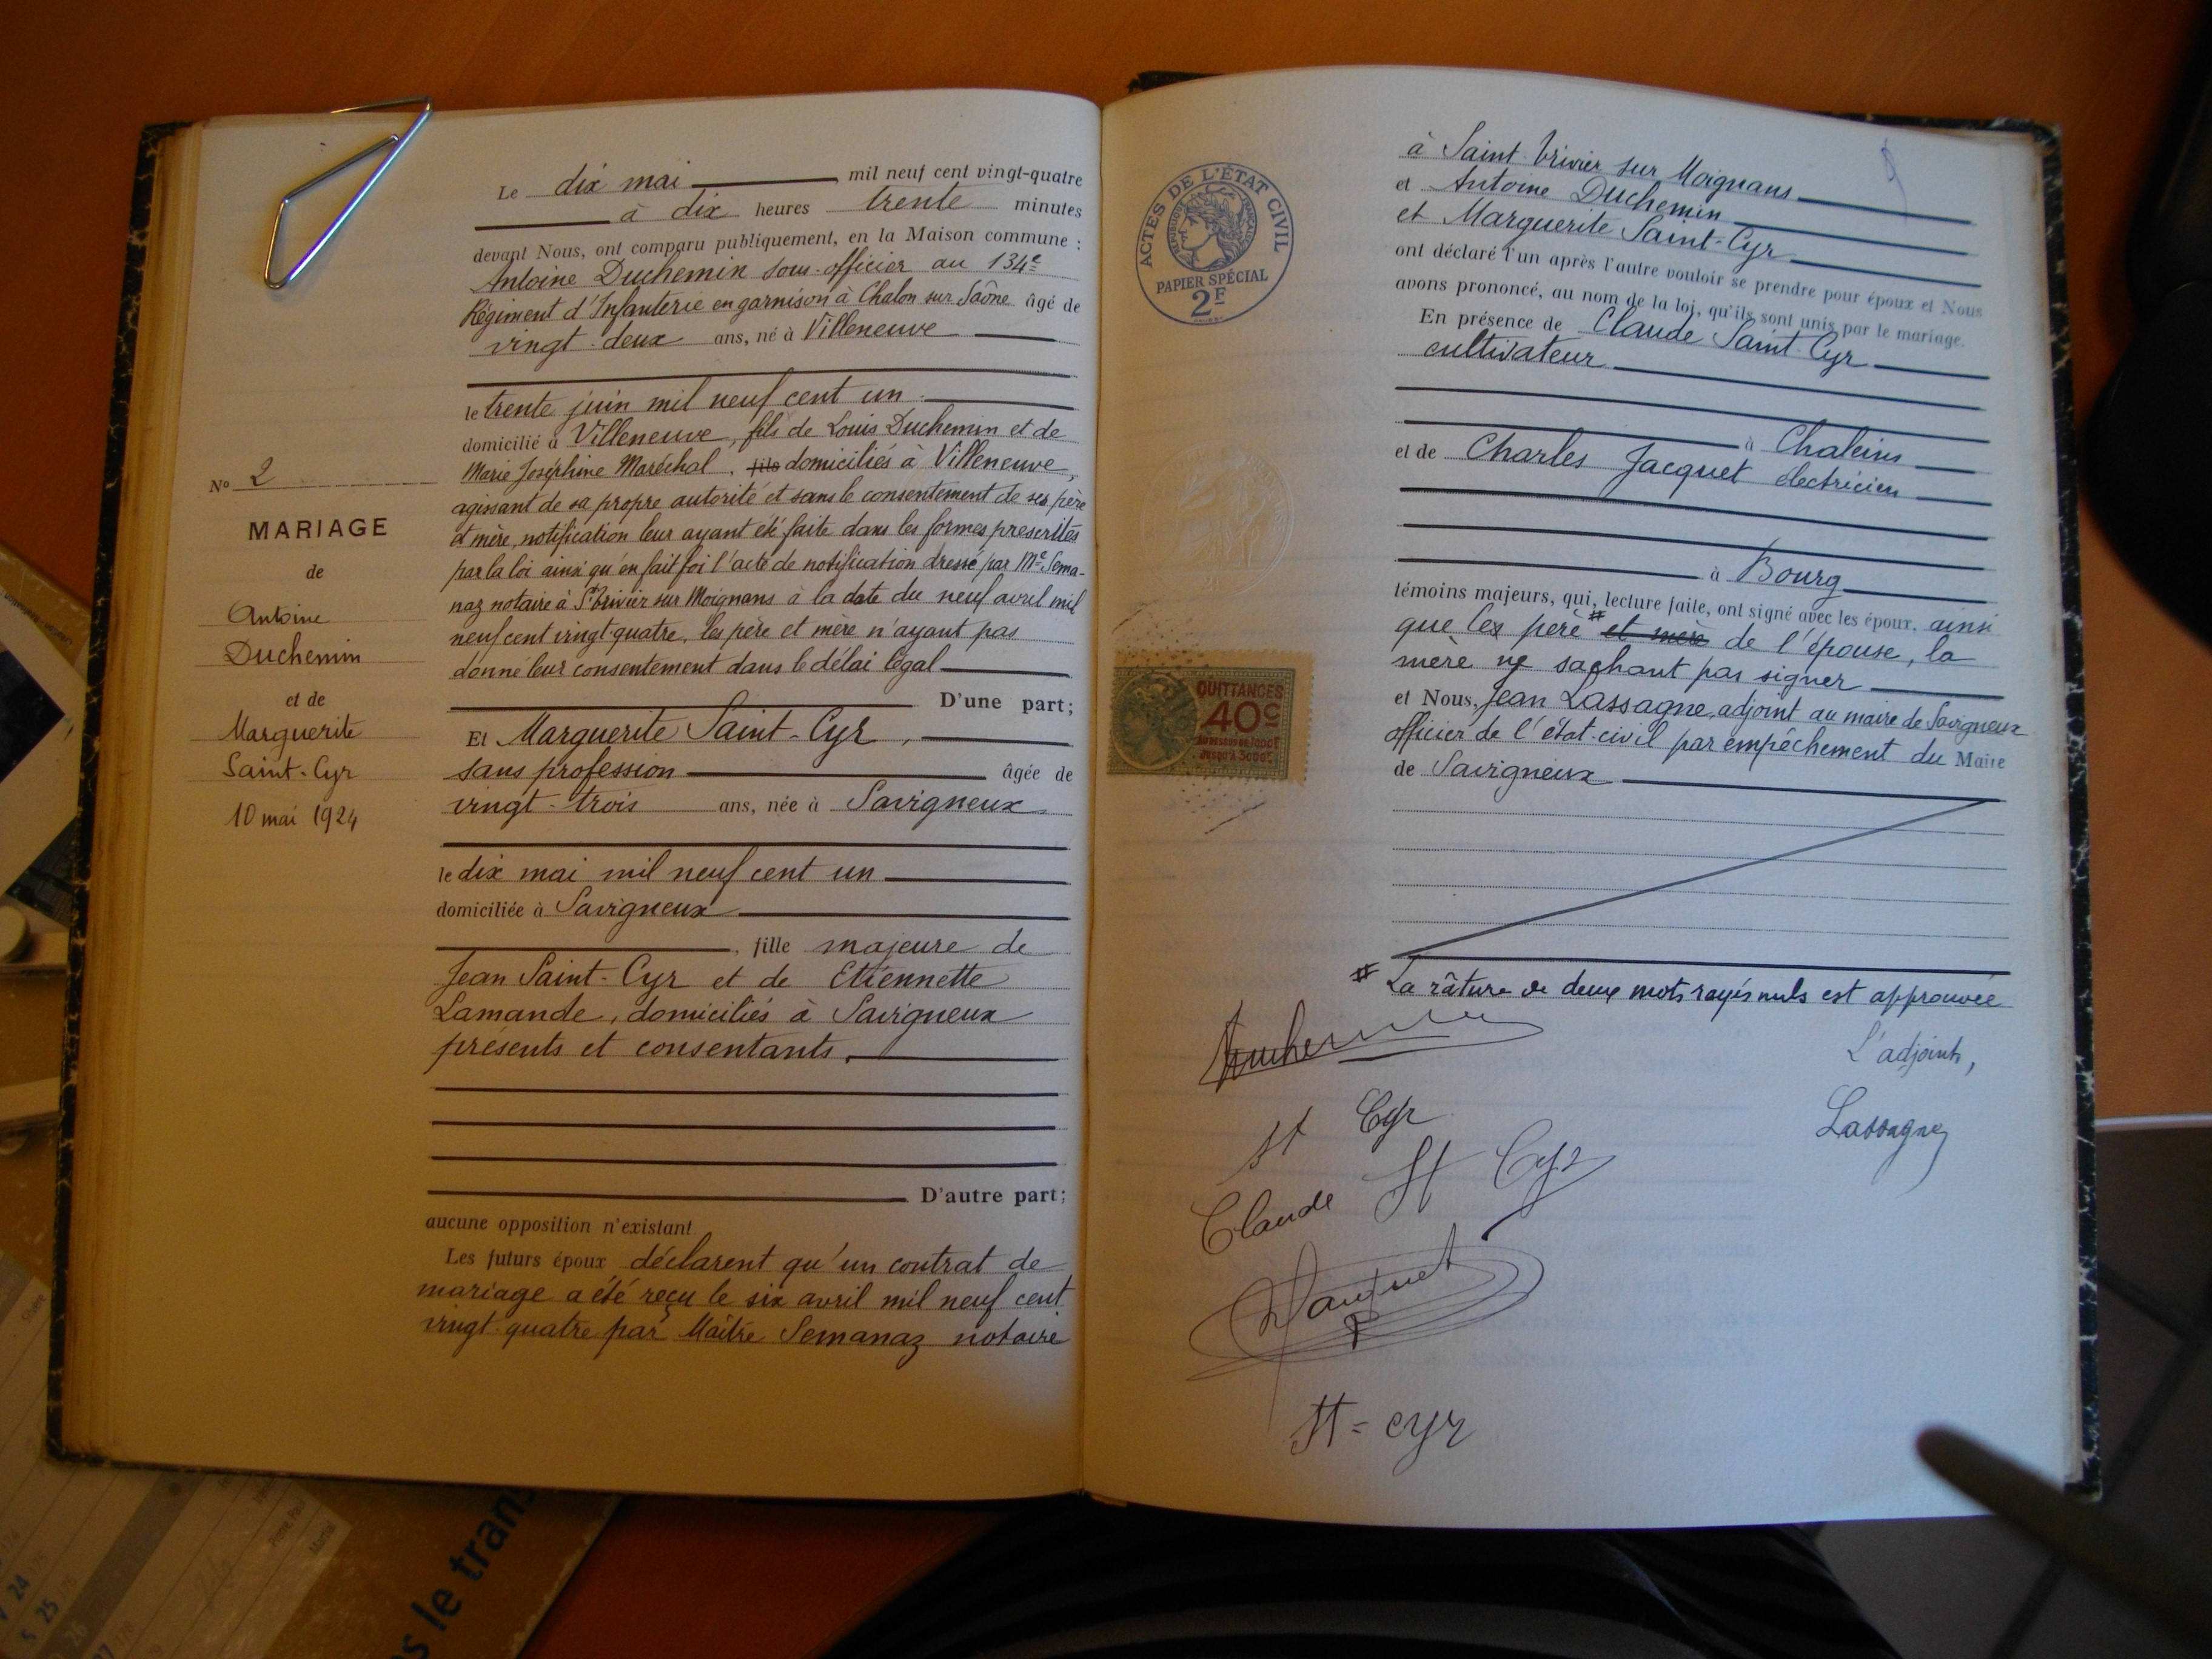 N° 2
MARIAGE
de
Antoine
Duchemin
et de
Marguerite
Saint-Cyr
10 mai 1924
Le dix mai mil neuf cent vingt-quatre
à dix heures trente minutes
devant Nous, ont comparu publiquement, en la Maison commune :
Antoine Duchemin sous-officier au 134e
Régiment d'Infanterie en garnison à Chalon sur Saône âgé de
vingt-deux ans, né à Villeneuve
le trente juin mil neuf cent un
domicilié à Villeneuve, fils de Louis Duchemin et de
Marie Joséphine Maréchal, fils domiciliés à Villeneuve,
agissant de sa propre autorité et sans le consentement de ses père
et mère, notification leur ayant été faite dans les formes prescrites
par la loi ainsi qu'en fait foi l'acte de notification dressé par Me Sema-
naz notaire à St Trivier sur Moignans à la date du neuf avril mil
neuf cent vingt-quatre, les père et mère n'ayant pas
donné leur consentement dans le délai légal
D'une part;
Et Marguerite Saint-Cyr,
sans profession âgée de
vingt-trois ans, née à Savigneux
le dix mai mil neuf cent un
domiciliée à Savigneux
, fille majeure de
Jean Saint-Cyr et de Etiennette
Lamande, domiciliés à Savigneux
présents et consentants,
D'autre part;
aucune opposition n'existant
Les futurs époux déclarent qu'un contrat de
mariage a été reçu le six avril mil neuf cent
vingt-quatre par Maître Semanaz notaire
ACTES DE L'ÉTAT CIVIL
PAPIER SPÉCIAL
2F
QUITTANCES
40c
à Saint-Trivier sur Moignans
et Antoine Duchemin
et Marguerite Saint-Cyr
ont déclaré l'un après l'autre vouloir se prendre pour époux et Nous
avons prononcé, au nom de la loi, qu'ils sont unis par le mariage.
En présence de Claude Saint-Cyr
cultivateur
à Chaleins
et de Charles Jacquet électricien
à Bourg
témoins majeurs, qui, lecture faite, ont signé avec les époux, ainsi
que les père # et mère de l'épouse, la
mère ne sachant pas signer
et Nous, Jean Lassagne, adjoint au maire de Savigneux
officier de l'état-civil par empêchement du Maire
de Savigneux
# La râture de deux mots rayés nuls est approuvée
L'adjoint,
Lassagne
Duchemin
St Cyr
Claude St Cyr
Jacquet
St-cyr